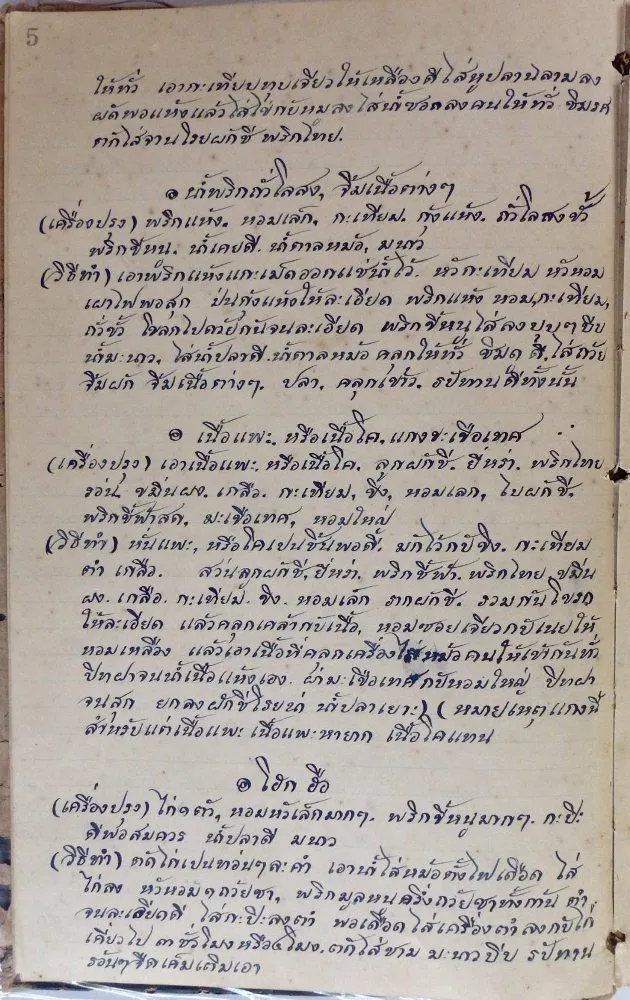 5
ให้ทั่ว เอากะเทียบทุบเจียวให้เหลืองดีใส่หูปลานลามลง
ผัดพอแห้งแล้วใส่ไข่กับหมูลงใส่น้ำซอดลงคนให้ทั่ว ชิมรศ
ตักใส่จานโรยผักชี พริกไทย.
๏ น้ำพริกถั่วโลสง, จิ้มเนื้อต่างๆ
(เครื่องปรุง) พริกแห้ง. หอมเล็ก, กะเทียม. กุ้งแห้ง. ถั่วโลสงขั้ว
พริกขี้หนู. น้ำเคยดี. น้ำตาลหม้อ, มนาว
(วิธีทำ) เอาพริกแห้งแกะเม็ดออกแช่น้ำไว้. หัวกะเทียม หัวหอม
เผาไฟพอสุก ป่นกุ้งแห้งให้ละเอียด พริกแห้ง หอม,กะเทียม,
ถั่วขั้ว โขลกไปด้วยกันจนละเอียด พริกขี้หนูใส่ลงบุบๆบีบ
น้ำมะนาว, ใส่น้ำปลาดี.น้ำตาลหม้อ คลุกให้ทั่ว ชิมดู ดี.ใส่ถ้วย
จิ้มผัก จิ้มเนื้อต่างๆ. ปลา. คลุกเข้าว. รับทานดีทั้งนั้น
๏ เนื้อแพะ. หรือเนื้อโค. แกงมะเขือเทศ
(เครื่องปรุง) เอาเนื้อแพะ. หรือเนื้อโค. ลูกผักชี. ยี่หร่า. พริกไทย
ร่อน. ขมินผง. เกลือ. กะเทียม, ขิ้ง, หอมเลก, ใบผักชี.
พริกชี้ฟ้าสด, มะเขือเทศ, หอมใหญ่
(วิธีทำ) หั่นแพะ, หรือโคเปนชิ้นพอดี. มักไว้กับขิง. กะเทียม
ตำ เกลือ. ส่วนลูกผักชี,ยี่หร่า. พริกชี้ฟ้า. พริกไทย ขมิน
ผง. เกลือ. กะเทียม. ขิง. หอมเล็ก รากผักชี. รวมกันโขรก
ให้ละเอียด แล้วคลุกเคล้ากับเนื้อ, หอมซอยเจียวกับเนยให้
หอมเหลือง แล้วเอาเนื้อที่คลุกเครื่องใส่หม้อคนให้เข้ากันทั่ว
ปิทฝาจนน้ำเนื้อแห้งเอง. ผ่ามะเขือเทศกับหอมใหญ่ ปิทฝา
จนสุก ยกลงผักชีโรยน่า น้ำปลาเยาะ) (หมายเหตุแกงนี้
สำหรับแต่เนื้อแพะ เนื้อแพะหายาก เนื้อโคแทน
๏ โฮก ฮือ
(เครื่องปรุง) ไก่๑ตัว, หอมหัวเล็กมากๆ. พริกขี้หนูมากๆ. กะปิ
ดีพอสมควร น้ำปลาดี มนาว
(วิธีทำ) ตัดไก่เปนทอนๆละคำ เอาน้ำใส่หม้อตั้งไฟเดือด ใส่
ไก่ลง หัวหอม๑ถ้วยชา, พริกมูลหนูครึ่งถ้วยชาทั้งก้าน ตำ,
จนละเอียดดี ใส่กะปิลงตำ พอเดือดใส่เครื่องตำลงกับไก่
เคี่ยวไป ๓ ชั่วโมงหรือ๔โมง. ตักใส่ชาม มะนาวบีบ รับทาน
ร้อนๆจืดเค็มเติมเอา